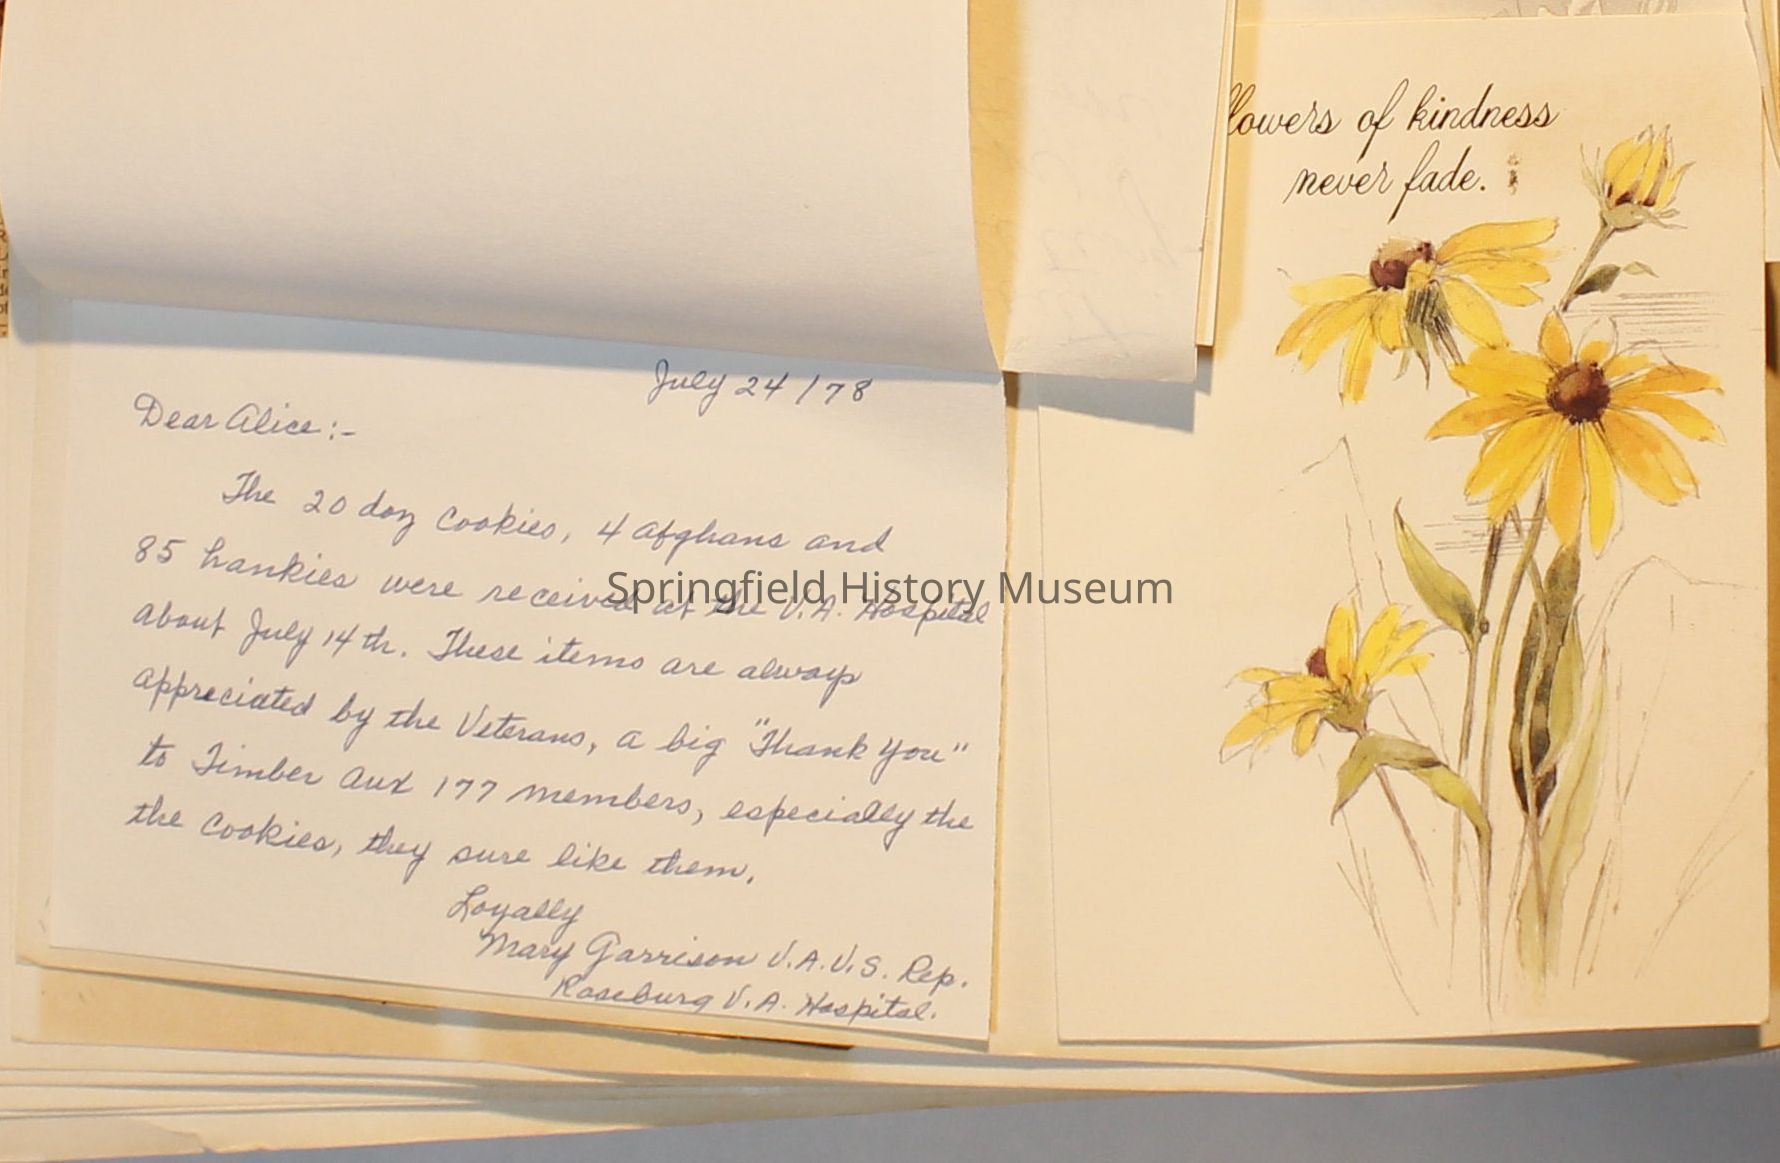 July 24/78
Dear Alice:-
The 20 doz Cookies, 4 afghans and
85 hankies were received at the V.A. Hospital
about July 14th. These items are always
appreciated by the Veterans, a big "Thank You"
to Timber Aux 177 members, especially the
the Cookies, they sure like them.
Loyally
Mary Garrison V.A.V.S. Rep.
Roseburg V.A. Hospital.
lowers of kindness
never fade.
Springfield History Museum